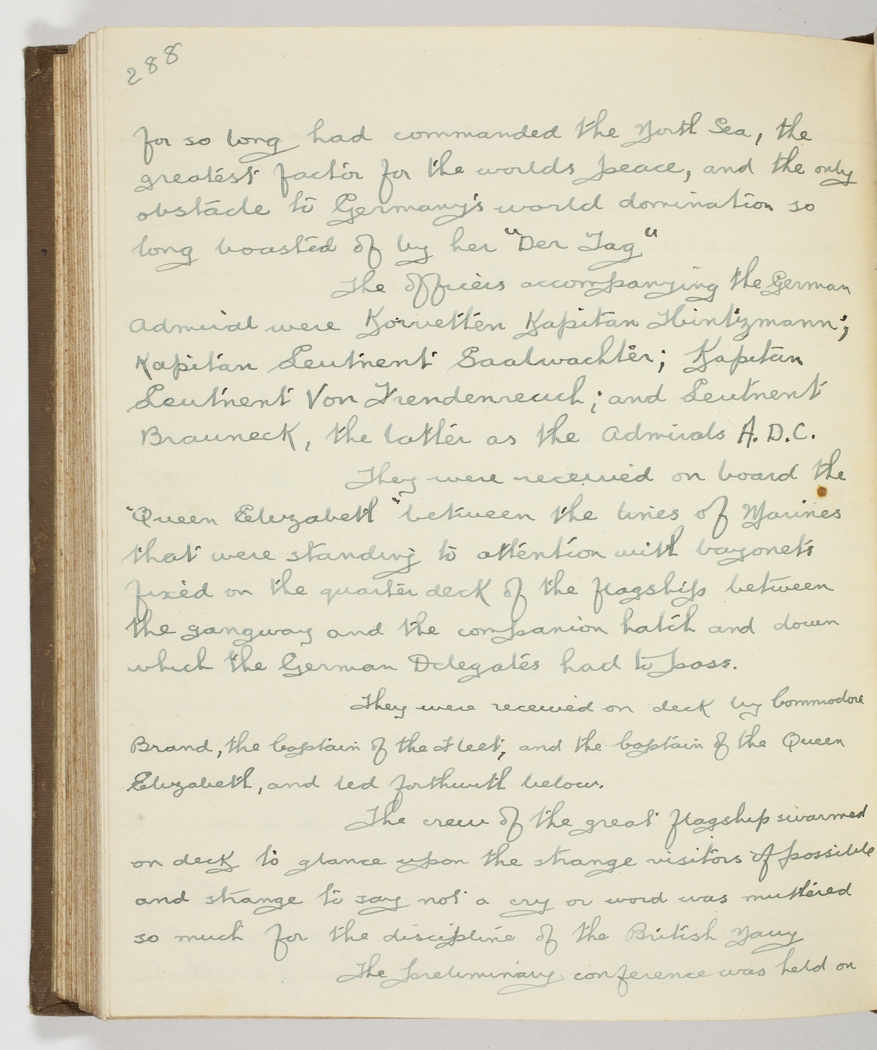 288
for so long had commanded the North Sea, the
greatest factor for the worlds peace, and the only
obstacle to Germany's world domination so
long boasted of by her "Der Tag"
The officers accompanying the German
Admiral were Korvetten Kapitan Hintzmann;
Kapitan Leutnent Saalwachter; Kapitan
Leutnent Von Frendenreuch; and Leutnent
Brauneck, the latter as the Admirals A.D.C.
They were received on board the
"Queen Elizabeth" between the lines of Marines
that were standing to attention with bayonets
fixed on the quarter deck of the flagship between
the gangway and the companion hatch and down
which the German Delegates had to pass.
They were received on deck by Commodore
Brand, the Captain of the Fleet, and the Captain of the Queen
Elizabeth, and led forthwith below.
The crew of the great flagship swarmed
on deck to glance upon the strange visitors if possible
and strange to say not a cry or word was muttered
so much for the discipline of the British Navy
The preliminary conference was held on